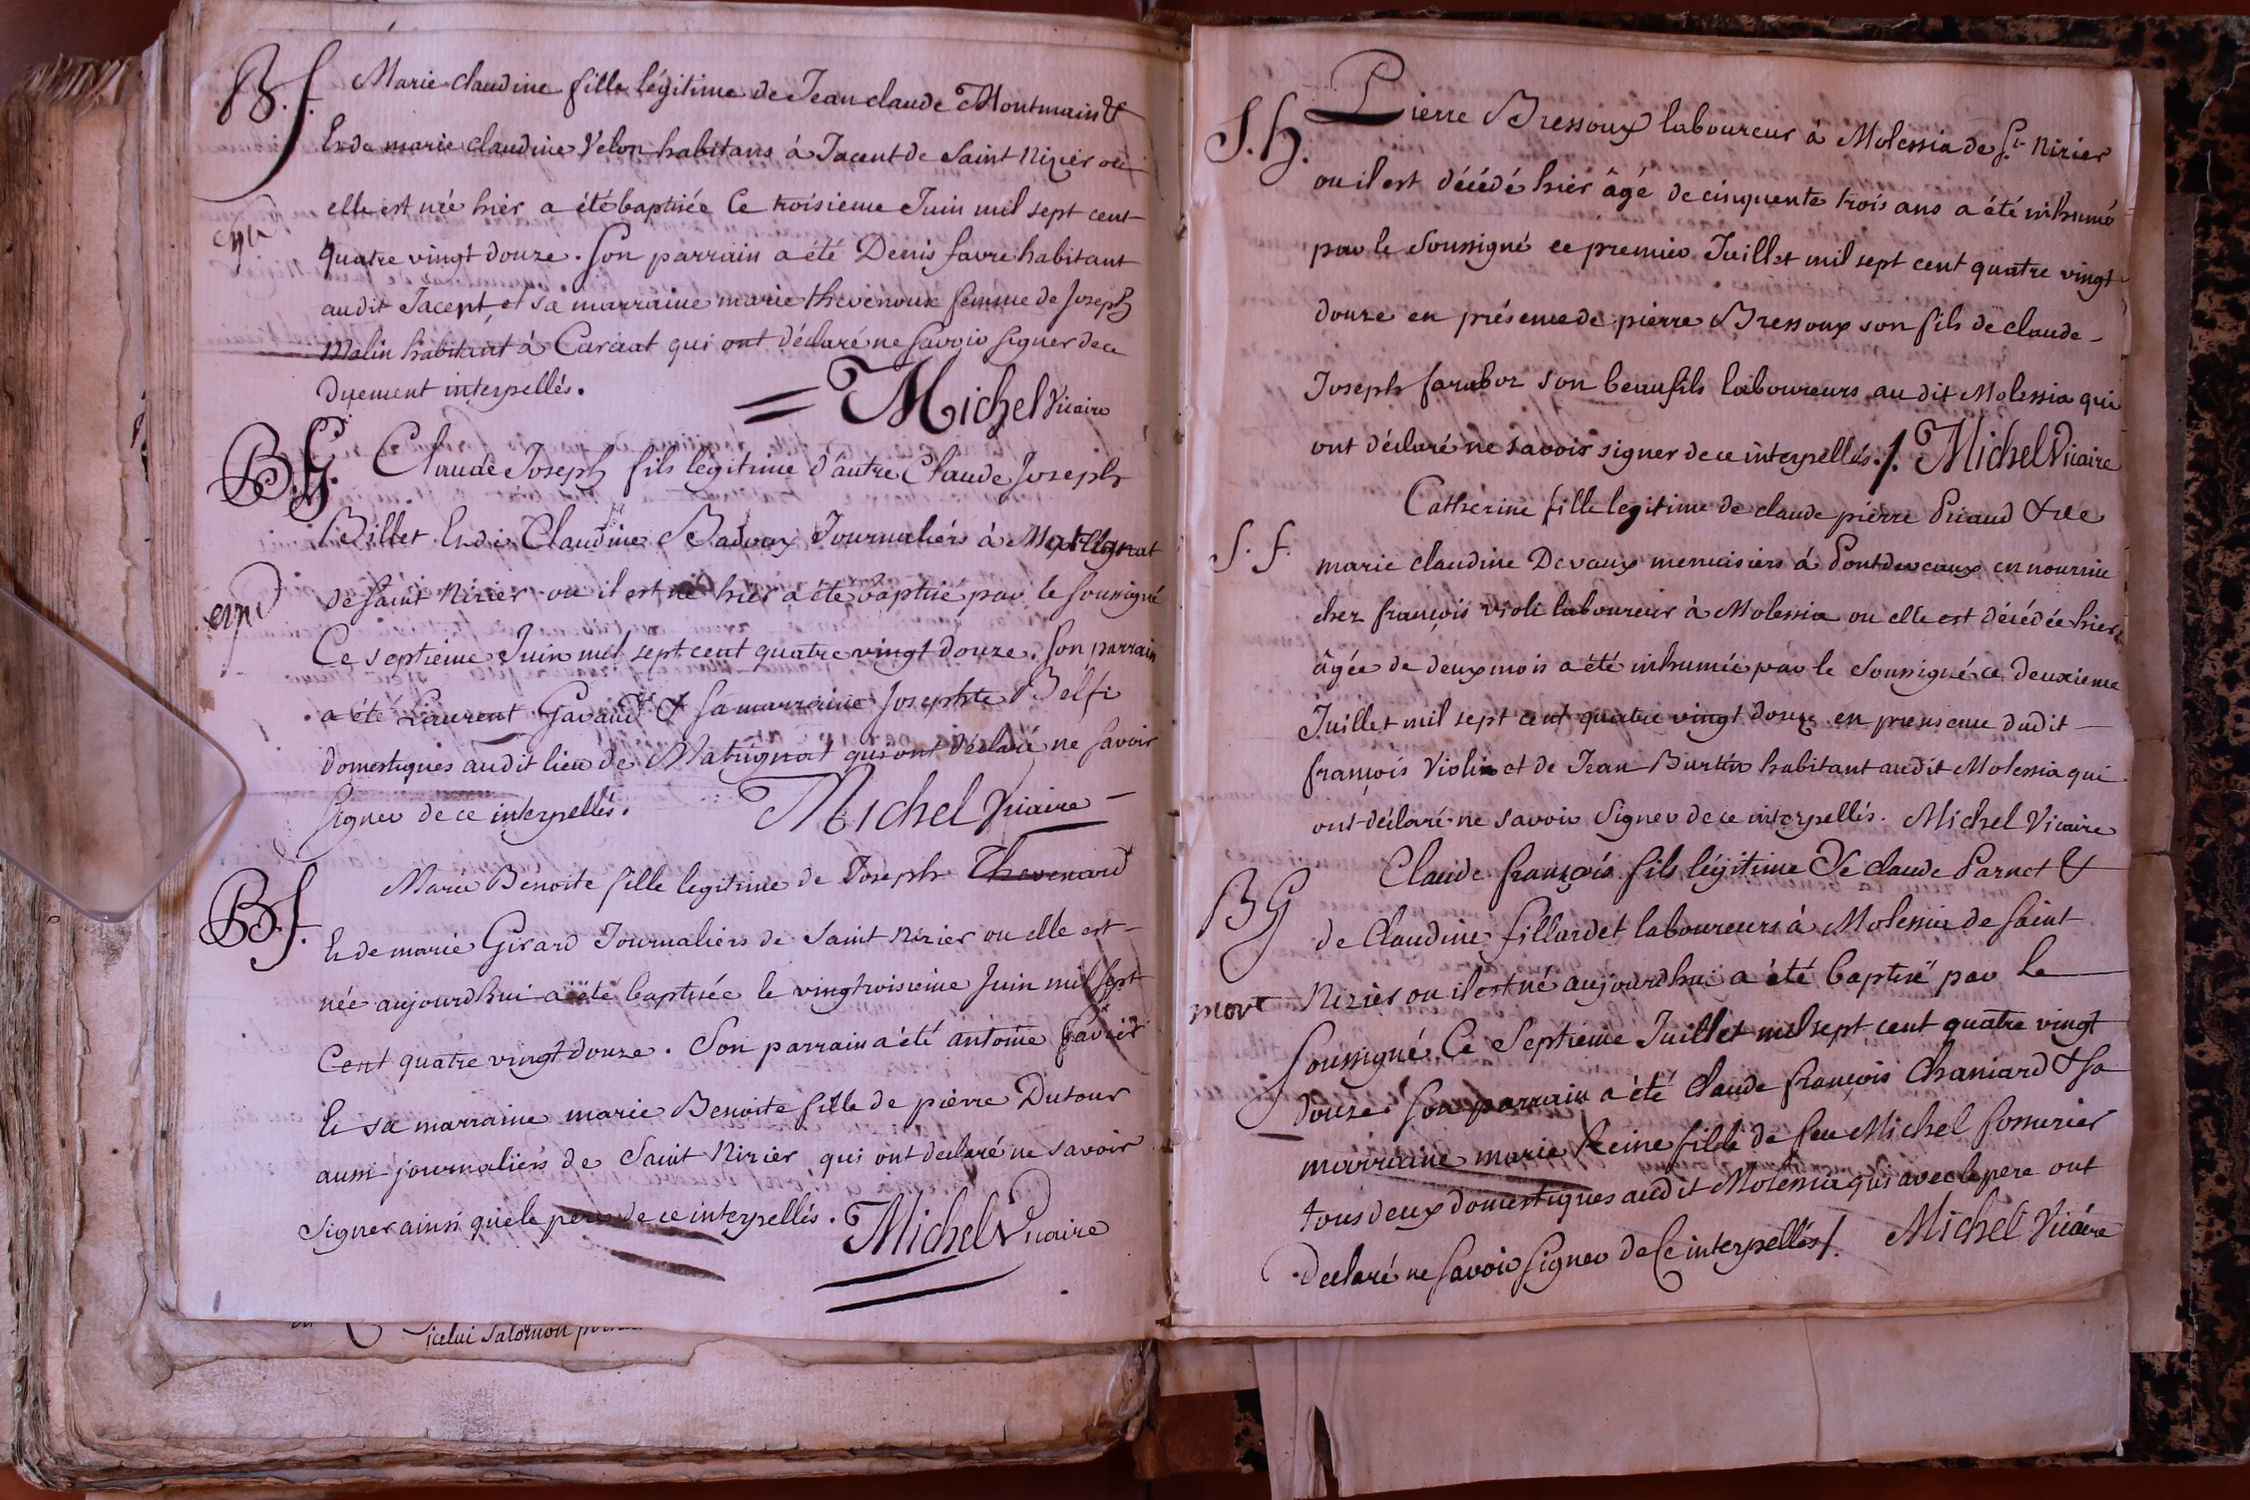 B. f.
Marie claudine fille légitime de Jean claude Montmain &
& de marie claudine Velon habitans à Jacent de Saint Nizier ou
elle est née hier a été baptisée Ce troisieme Juin mil sept cent
quatre vingt douze. Son parrain a été Denis favre habitant
audit Jacent, et sa marraine marie thevenoux femme de Joseph
Malin habitant à Curciat qui ont déclaré ne savoir signer de ce
Duement interpellés.
Michel Vicaire
B. G.
Claude Joseph fils légitime d'autre Claude Joseph
Billet & de Claudine Badoux Journaliers à
de saint Nizier ou il est né hier a été baptisé par le soussigné
Ce septieme Juin mil sept cent quatre vingt douze. Son parrain
a été Laurent Gavand & sa marraine Josephte Belfe
domestiques audit lieu de Matrignat qui ont déclaré ne savoir
signer de ce interpellés.
Michel Vicaire
B. f.
Marie Benoite fille legitime de Joseph Thevenard
& de marie Girard Journaliers de Saint Nizier ou elle est
née aujourdhui a été baptisée le vingtroisieme Juin mil sept
Cent quatre vingt douze. Son parrain a été antoine favier
& sa marraine marie Benoite fille de pierre Dutour
aussi journaliers de Saint Nizier qui ont declaré ne savoir
signer ainsi que le pere de ce interpellés.
Michel Vicaire
icelui Salomon
S. h.
Pierre Bressoux laboureur à Molessia de St. Nizier
ou il est décédé hier âgé de cinquente trois ans a été inhumé
par le soussigné ce premier Juillet mil sept cent quatre vingt
douze en présence de pierre Bressoux son fils de claude
Joseph faraboz son beaufils laboureurs au dit Molessia qui
ont déclaré ne savoir signer de ce interpellés./. Michel Vicaire
S. f.
Catherine fille legitime de claude pierre Picaud & de
marie claudine Devaux menuisiers à Pontdevaux en nourrice
chez françois violi laboureur à Molessia ou elle est décédée hier
âgée de deux mois a été inhumée par le soussigné ce deuxieme
Juillet mil sept cent quatre vingt douze en presence dudit
françois Violi et de Jean Burtin habitant audit Molessia qui
ont déclaré ne savoir signer de ce interpellés. Michel Vicaire
B G
Claude françois fils légitime De claude Parnet &
de Claudine fillardet laboureurs à Molessia de saint
mort
Nizier ou il est né aujourdhui a été baptisé par le
soussigné Ce Septieme Juillet mil sept cent quatre vingt
douze son parrain a été Claude françois Chaniard & sa
marraine marie Reine fille de feu Michel
tous deux domestiques audit Molessia qui avec le pere ont
declaré ne savoir signer de Ce interpellés/. Michel Vicaire